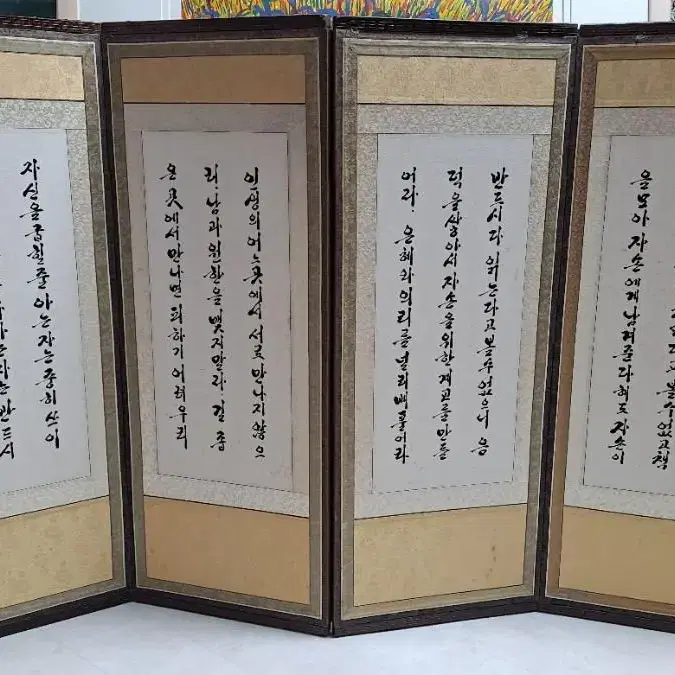 고볼수없고책
을모아 자손에게남겨준다해도 자손이
반드시다 읽는다고볼수없으니 음
덕을쌓아서 자손을위한계교를만들
어라. 은혜와의리를널리베풀어라
인생의어느곳에서 서로만나지않으
리. 남과원한을맺지말라. 길좁
은곳에서만나면피하기어려우리
자신을굽힐줄아는자는중히쓰이
자는반드시